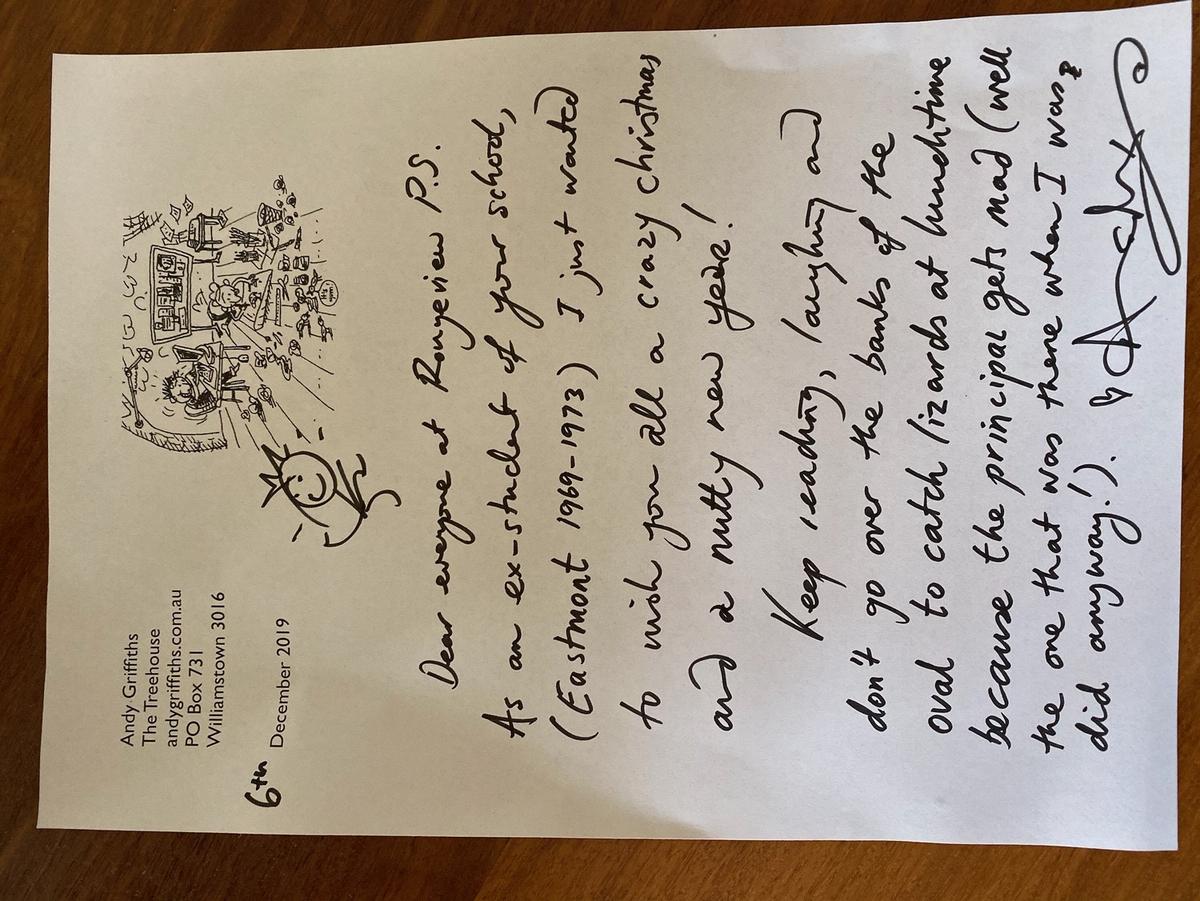 Andy Griffiths
The Treehouse
andygriffiths.com.au
PO Box 731
Williamstown 3016
6th December 2019
Dear everyone at Rangeview P.S.
As an ex-student of your school,
(Eastmont 1969-1973) I just wanted
to wish you all a crazy christmas
and a nutty new year!
Keep reading, laughing and
don't go over the banks of the
oval to catch lizards at lunchtime
because the principal gets mad (well
the one that was there when I was
did anyway!).
Andy